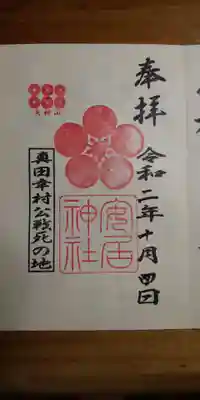 奉拝
令和二年十月四日
安居
神社
真田幸村公戦死の地